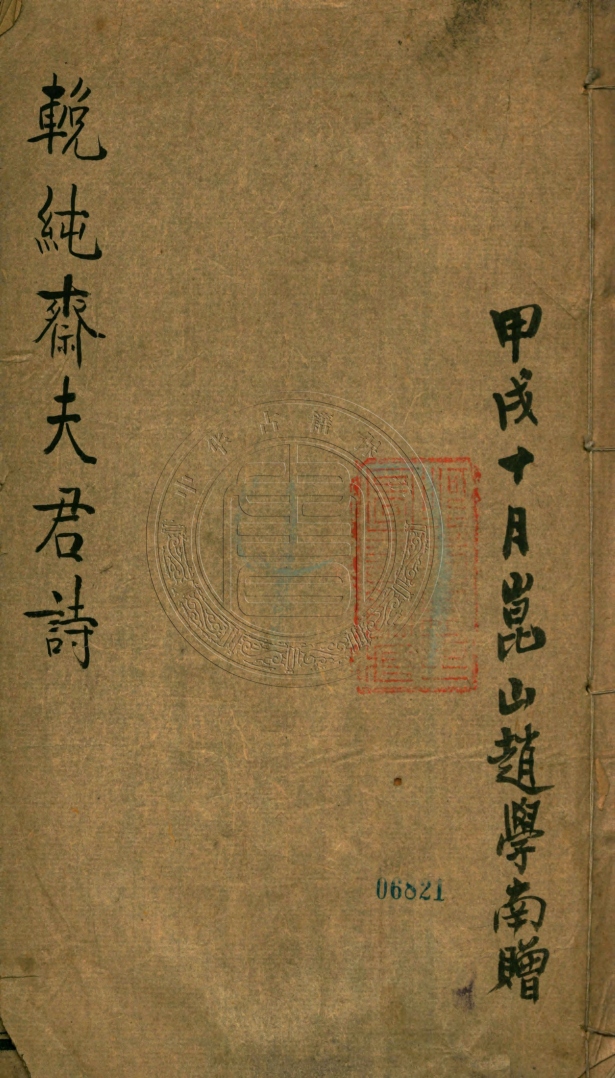 甲戌十月崑山趙學南贈
輓純齋夫君詩
06821